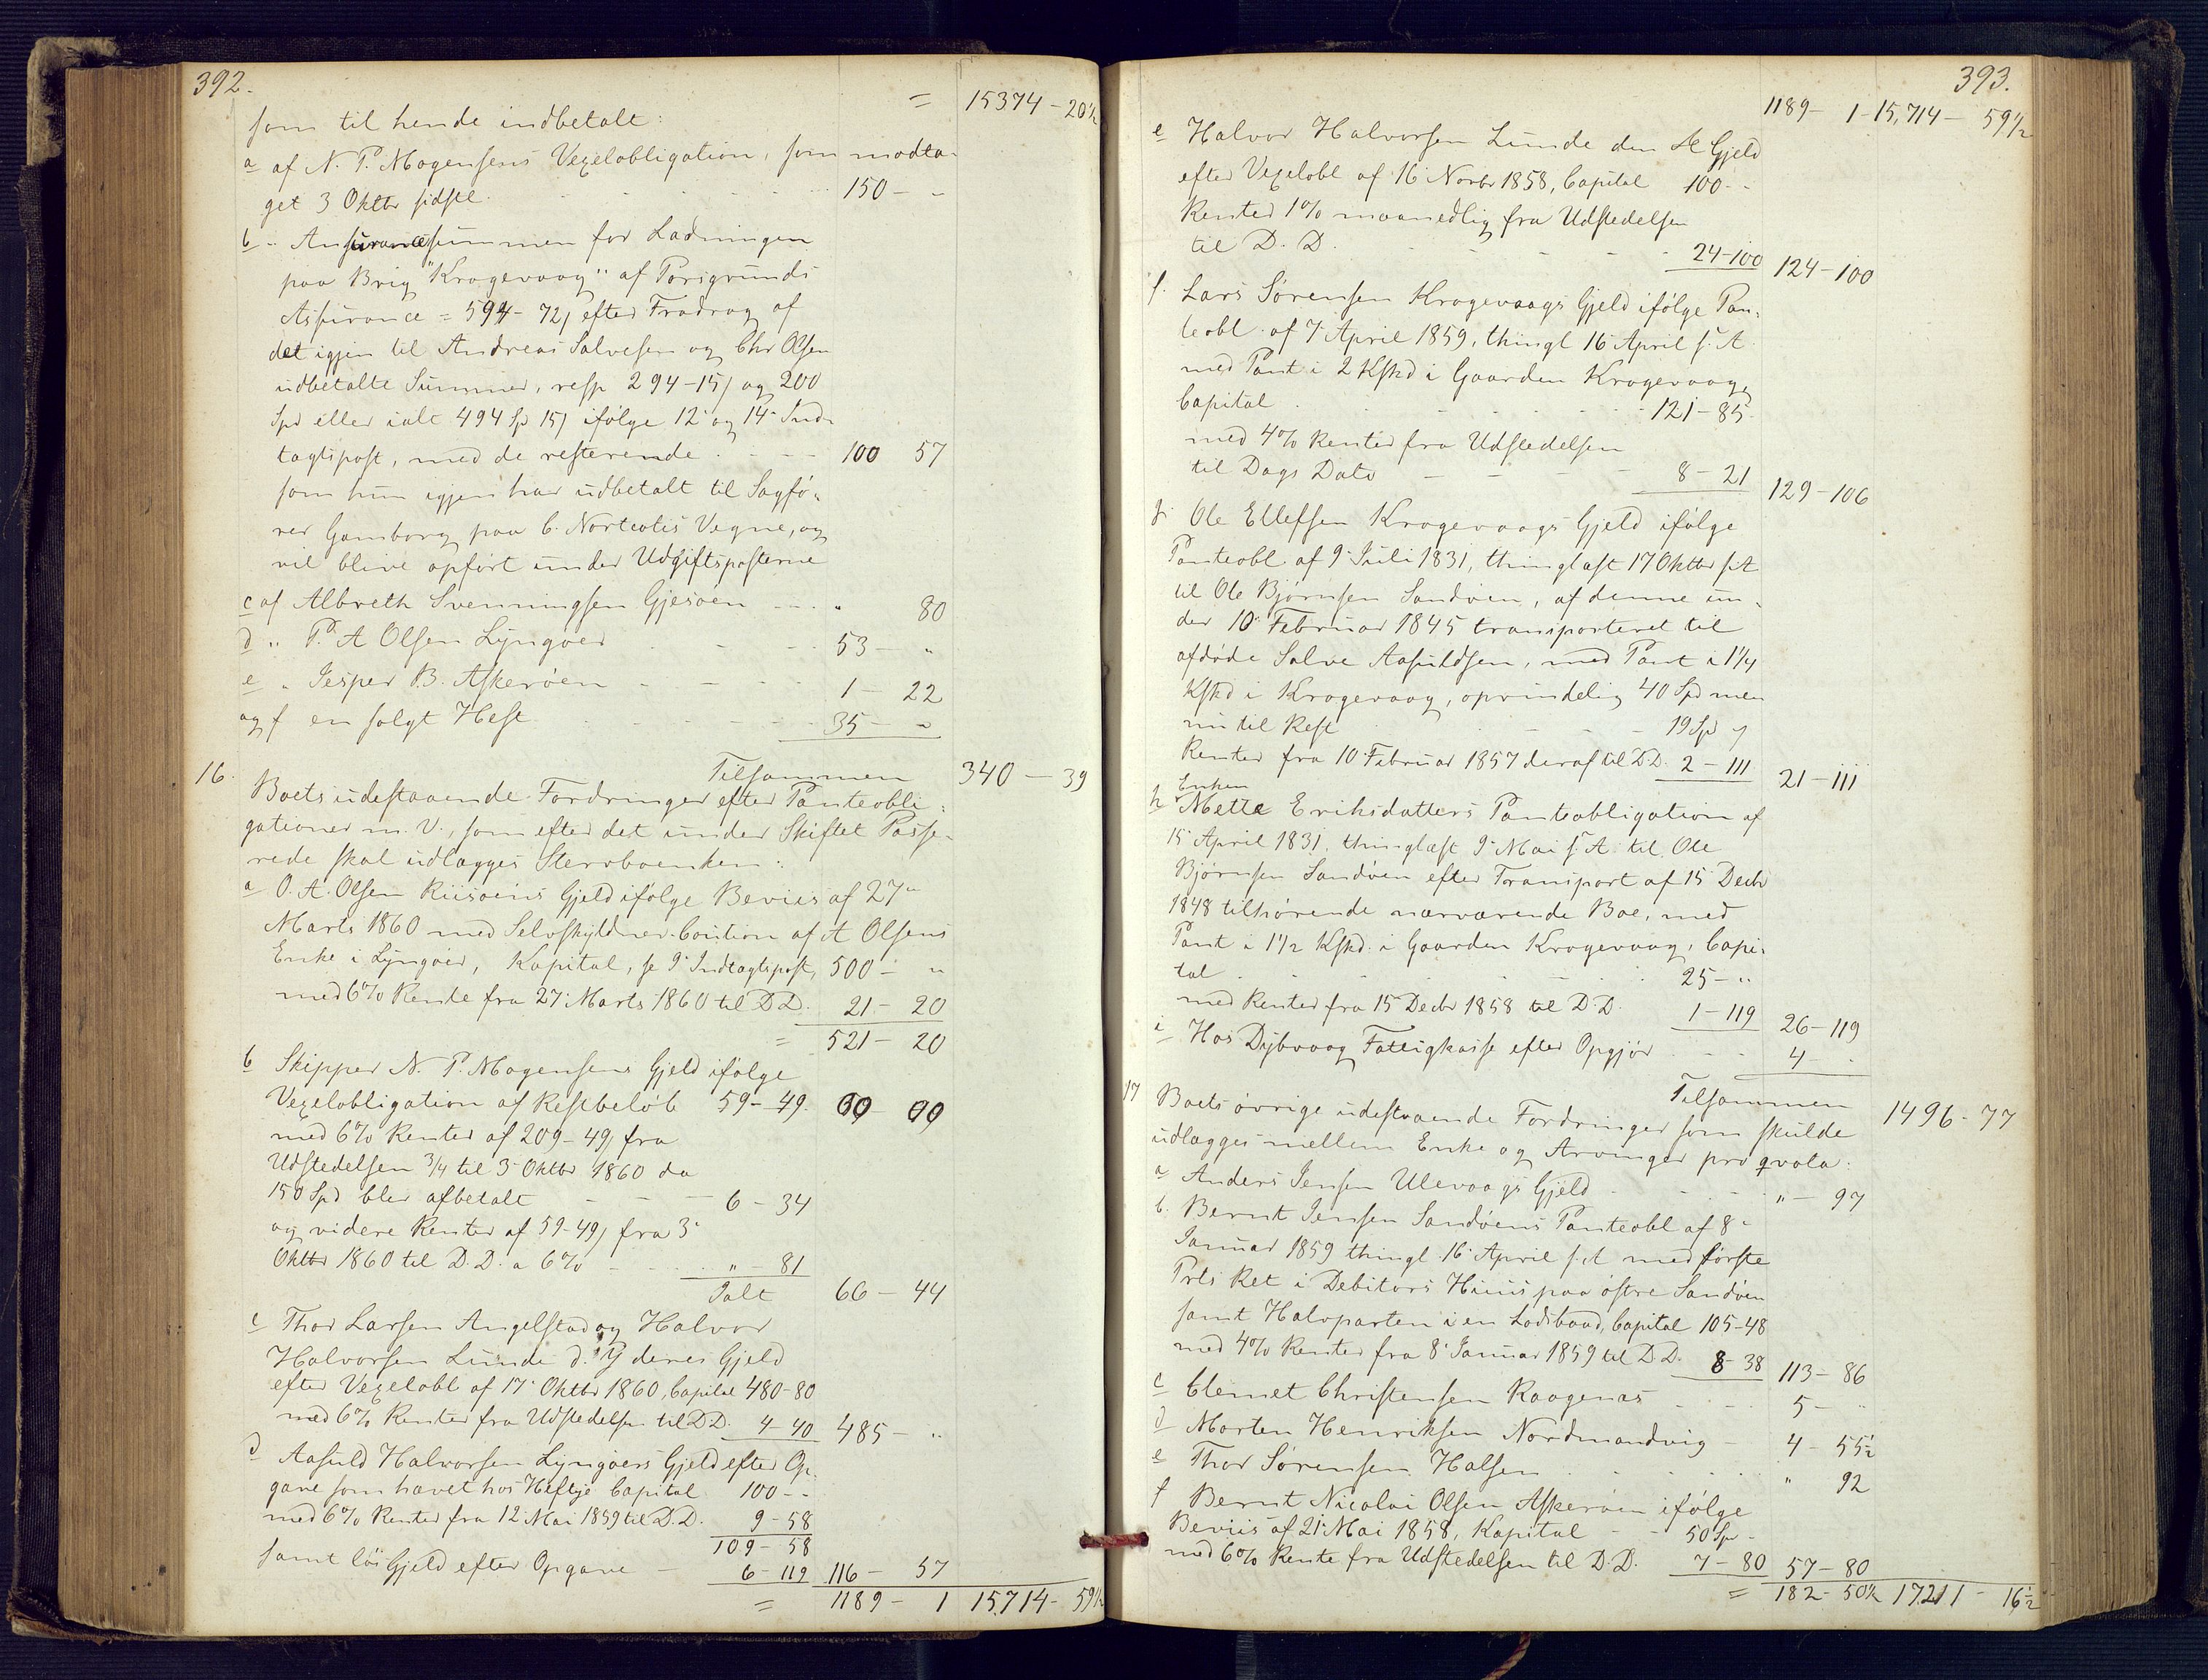 392.
= 15374 - 20½
som til hende indbetalt:
a af N. P. Mogensens Vexelobligation, som modta-
get 3 Oktbr sidstl. 150 - "
b " Assurancesummen for Ladningen
paa Brig "Krogevaag" af Porsgrunds
Assurance = 594 - 72 efter Fradrag af
det igjen til Andreas Salvesen og Chr Olsen
udbetalte Summer, resp 294-15 og 200
Spd eller ialt 494 Sp 15 ifølge 12 og 14 Ind-
tagtspost, med de resterende 100 57
som hun igjen har udbetalt til Sagfø-
rer Gamborg paa C. Vegne, og
vil blive opført under Udgiftsposterne
c af Albreth Svenningsen Gjesøen " 80
d " P. A Olsen Lyngøer 53 - "
e " Jesper B. Askerøen 1 - 22
og f en solgt Hest 35 - "
Tilsammen 340 - 39
16. Boets udestaaende Fordringer efter Panteobli-
gationer m. V., som efter det under Skiftet Passe-
rede skal udlægges Stervboenken:
a O. A. Olsen Riisøens Gjeld ifølge Beviis af 27"
Marts 1860 med Selvskyldner-Caution af A Olsens
Enke i Lyngøer, Kapital, se 9 Indtagtspost, 500 - "
med 6% Rente fra 27 Marts 1860 til D.D. 21 - 20
= 521 - 20
b Skipper N. P. Mogensens Gjeld ifølge
Vexelobligation af Restbeløb 59 - 49. 00 - 00
med 6% Renter af 209 - 49 fra
Udstedelsen 3/4 til 3 Oktbr 1860 da
150 Spd blev afbetalt 6 - 34
og videre Renter af 59-49 fra 3
Oktbr 1860 til D.D. a 6% " - 81
Ialt 66 - 44
c Thor Larsen Angelstad og Halvor
Halvorsen Lunde d. Y deres Gjeld
efter Vexelobl af 17 Oktbr 1860, Capital 480-80
med 6% Renter fra Udstedelsen til D.D. 4-40 485 - "
d Aasuld Halvorsen Lyngøers Gjeld efter Op-
gave som havet hos Heftye Capital 100 - -
med 6% Renter fra 12 Mai 1859 til D.D. 9 - 58
109 - 58
samt løs Gjeld efter Opgave 6 - 119 116 - 57
= 1189 - 1 15714 - 59½
393.
1189 - 1 - 15,714 - 59½
e Halvor Halvorsen Lunde den Æ Gjeld
efter Vexelobl af 16 Novbr 1858, Capital 100 - -
Renter 1% maanedlig fra Udstedelsen
til D. D. 24-100 124-100
f. Lars Sørensen Krogevaags Gjeld ifølge Pan-
teobl. af 7 April 1859, thingl 16 April s. A
med Pant i 2 Kskd i Gaarden Krogevaag,
Capital 121-85
med 4% Renter fra Udstedelsen
til Dags Dato 8 - 21 129 - 106
g. Ole Ellefsen Krogevaags Gjeld ifølge
Panteobl af 9 Juli 1831, thinglæst 17 Oktbr s A
til Ole Bjørnsen Sandøen, af denne un-
der 10 Februar 1845 transporteret til
afdøde Salve Aasuldsen, med Pant i 1¼
Kskd i Krogevaag, oprindelig 40 Spd men
nu til Rest 19 Spd "
Renter fra 10 Februar 1857 deraf til D.D. 2 - 111 21 - 111
Enken
h Mette Eriksdatters Panteobligation af
15 April 1831, thinglæst 9 Mai s. A. til Ole
Bjørnsen Sandøen efter Transport af 15 Decbr
1848 tilhørende nærværende Boe, med
Pant i 1½ Kskd. i Gaarden Krogevaag, Capi-
tal 25 - "
med Renter fra 15 Decbr 1858 til D.D. 1 - 119 26 - 119
i Hos Dybvaag Fattigkasse efter Opgjør 4 -
Tilsammen 1496 - 77
17 Boets øvrige udestaaende Fordringer som skulde
udlægges mellem Enke og Arvinger pro qvota:
a Anders Jensen Ulevaags Gjeld " - 97
b. Bernt Jensen Sandøens Panteobl af 8
Januar 1859 thingl. 16 April s. A med første
Prts Ret i Debitors Huus paa østre Sandøen
samt Halvparten i en Lodsbaad, Capital 105-48
med 4% Renter fra 8 Januar 1859 til D D. 8-38 113 - 86
c Clemet Christensen Raagenæs 5 - "
d Morten Henriksen Nordmandvig 4 - 55½
e Thor Sørensen Halsen " 92
f Bernt Nicolai Olsen Askerøen ifølge
Beviis af 21 Mai 1858, Kapital 50 Sp -
med 6% Rente fra Udstedelsen til D.D. 7 - 80 57 - 80
= 182 - 50½ 17211 - 16½